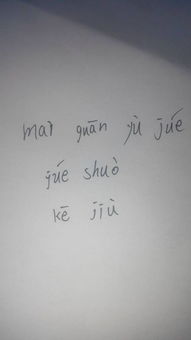 mai guān yù júe
júe shuò
kē jiù